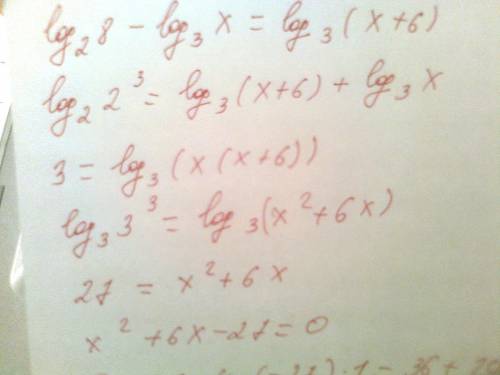 log₂ 8 − log₃ x = log₃ (x+6)
log₂ 2³ = log₃ (x+6) + log₃ x
3 = log₃ (x (x+6))
log₃ 3³ = log₃ (x²+6x)
27 = x²+6x
x² +6x−27=0